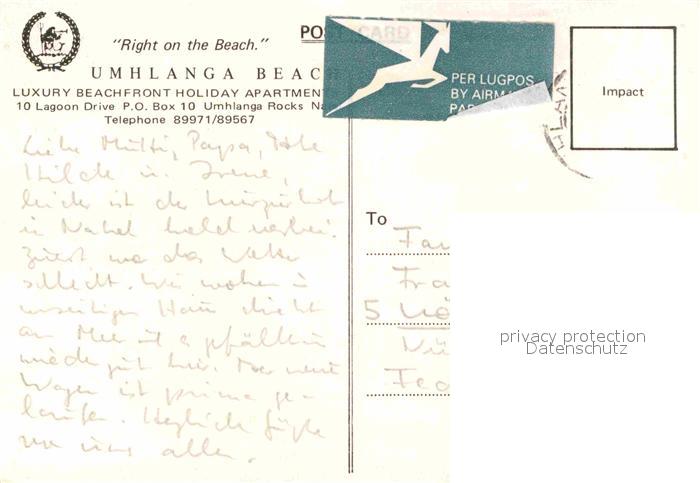 "Right on the Beach."
POST CARD
UMHLANGA BEACH
LUXURY BEACHFRONT HOLIDAY APARTMENT
10 Lagoon Drive P.O. Box 10 Umhlanga Rocks Na
Telephone 89971/89567
PER LUGPOS
BY AIRMA
PAR
Impact
Liebe Mutti, Papa,
Hilde u. Irene,
leider ist der
in Natal bald vorbei.
Zuerst war das Wetter
schlecht. Wir wohnen in
Haus direkt
am Meer u. es gefällt uns
wieder gut hier. Der neue
Wagen ist prima ge-
laufen. Herzliche Grüße
von uns allen.
To
Fa
Fra
5 Kö
Fed
privacy protection
Datenschutz